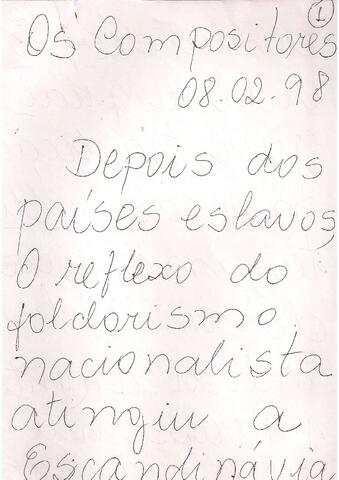 1
Os Compositores
08.02.98
Depois dos
países eslavos,
O reflexo do
foldorismo
nacionalista
atingiu a
Escandinávia